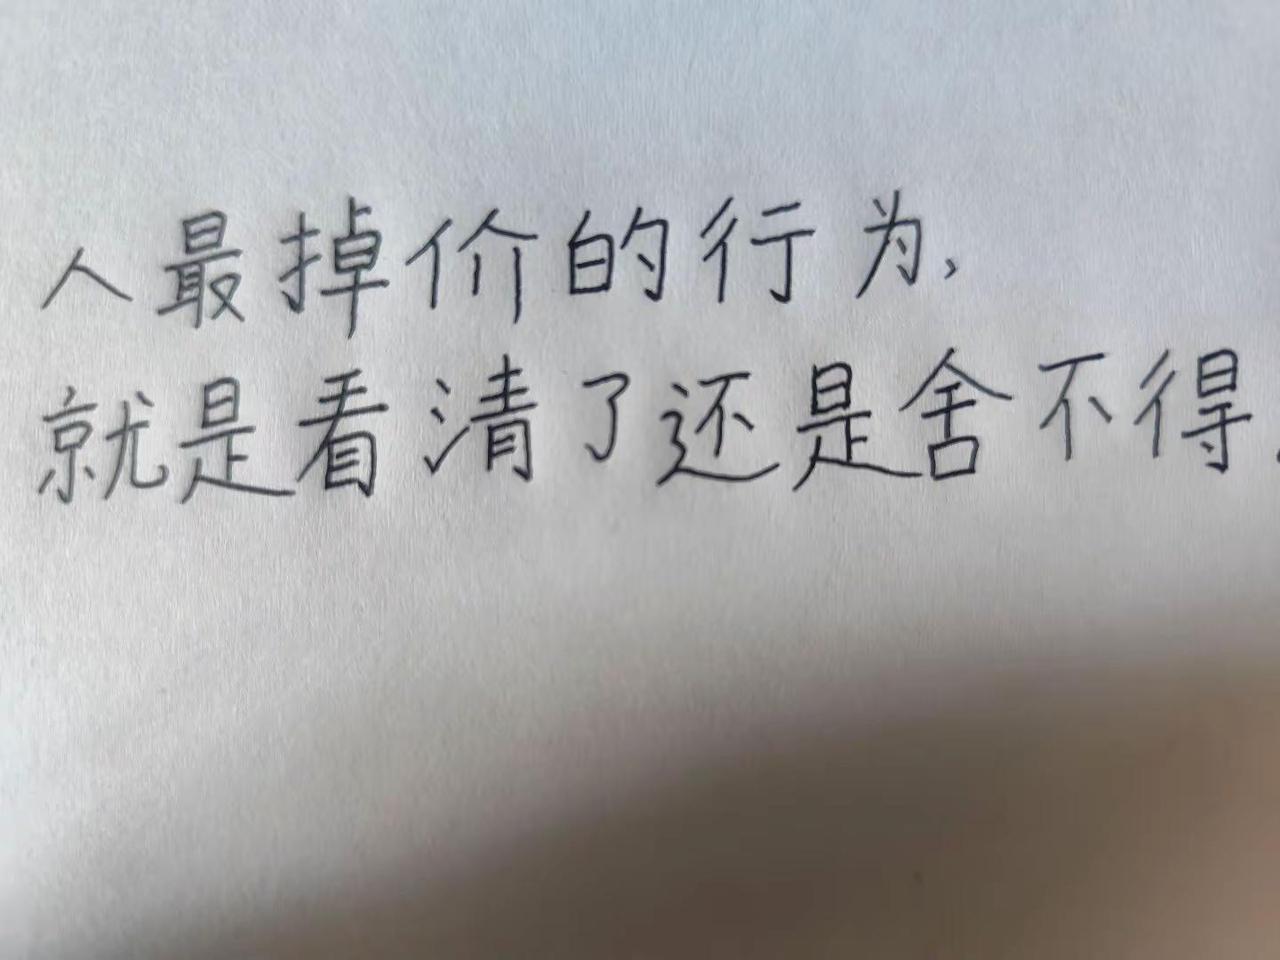 人最掉价的行为,
就是看清了还是舍不得.